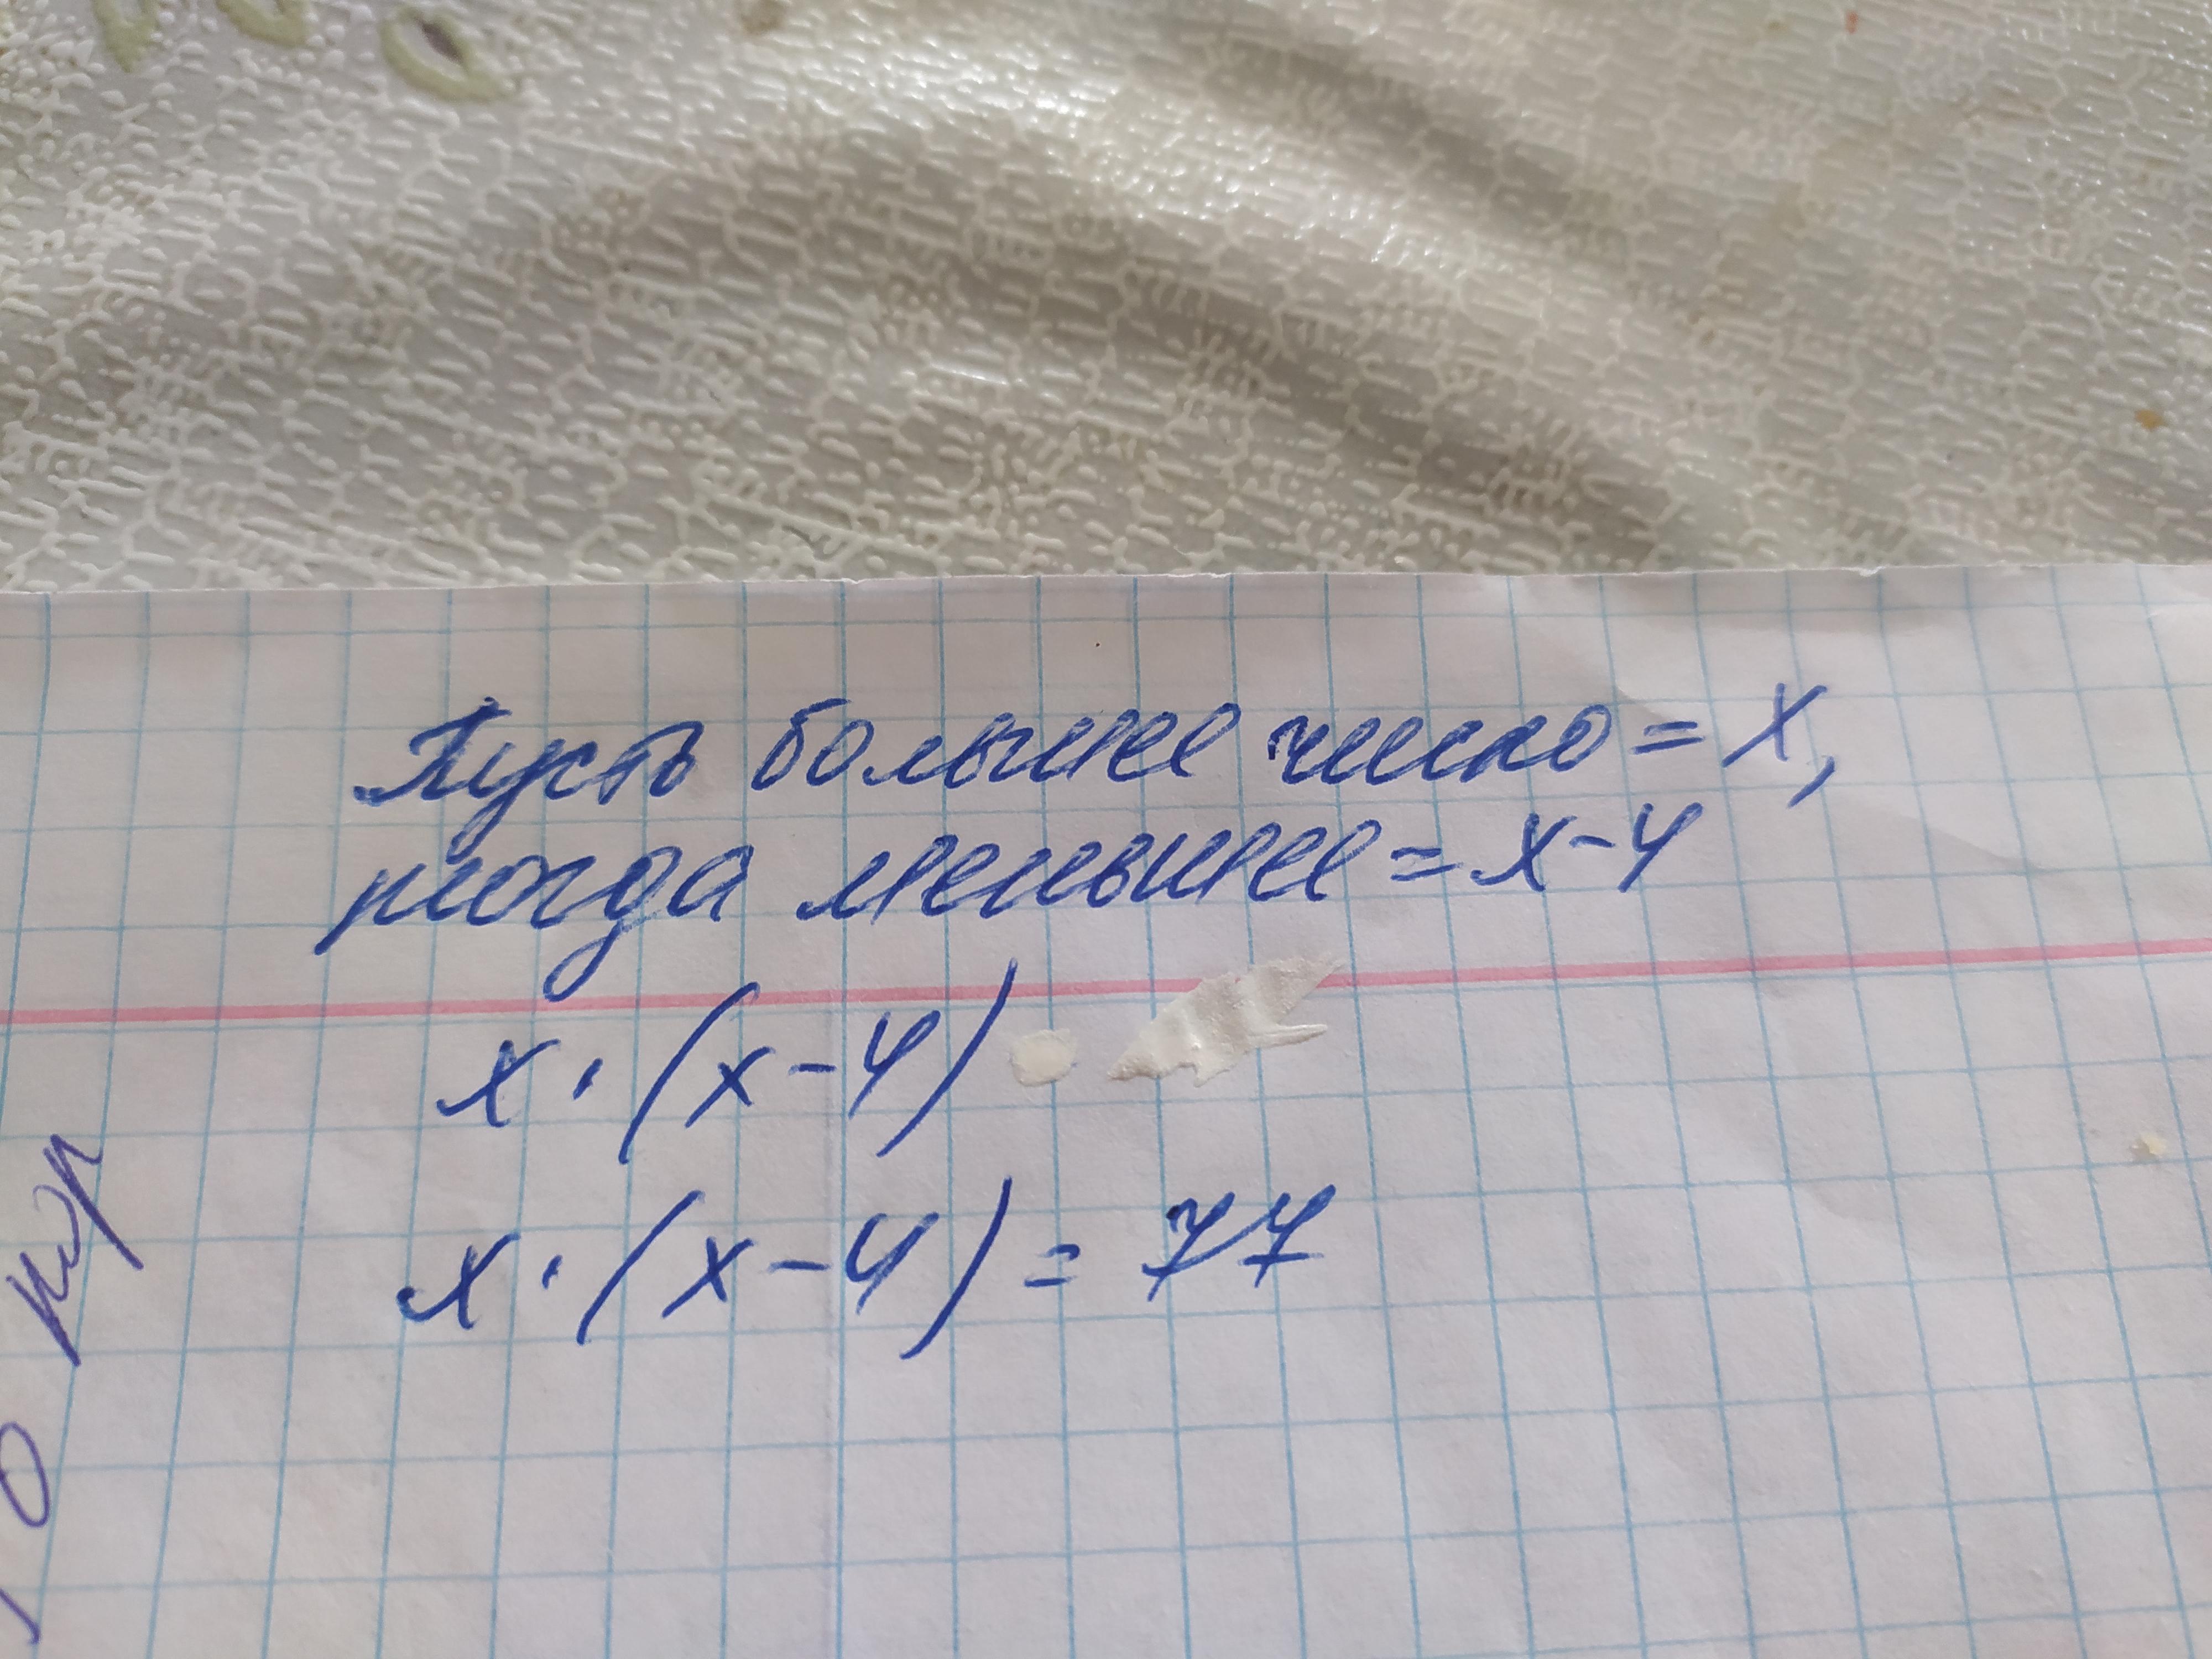 Пусть большее число = х,
тогда меньшее = х-4
х · (х-4)
х · (х-4) = 77